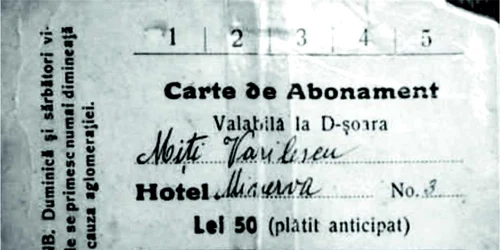 1 | 2 | 3 | 4 | 5
Carte de Abonament
Valabilă la D-șoara
Miți Vasilescu
Hotel Minerva No. 3
Lei 50 (plătit anticipat)
NB. Duminică și sărbători vi-
le se primesc numai dimineață
cauza aglomerației.